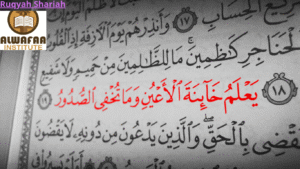 Ruqyah Shariah
ALWAFAA
INSTITUTE
ٱلْحِسَابِ ١٧ وَأَنذِرْهُمْ يَوْمَ ٱلْأَزِفَةِ إِذِ ٱلْقُلُوبُ
ٱلْحَنَاجِرِ كَٰظِمِينَ مَا لِلظَّٰلِمِينَ مِنْ حَمِيمٍ وَلَا شَفِيعٍ
١٨ يَعْلَمُ خَآئِنَةَ ٱلْأَعْيُنِ وَمَا تُخْفِى ٱلصُّدُورُ ١٩
يَقْضِى بِٱلْحَقِّ وَٱلَّذِينَ يَدْعُونَ مِن دُونِهِۦ لَا يَقْضُونَ